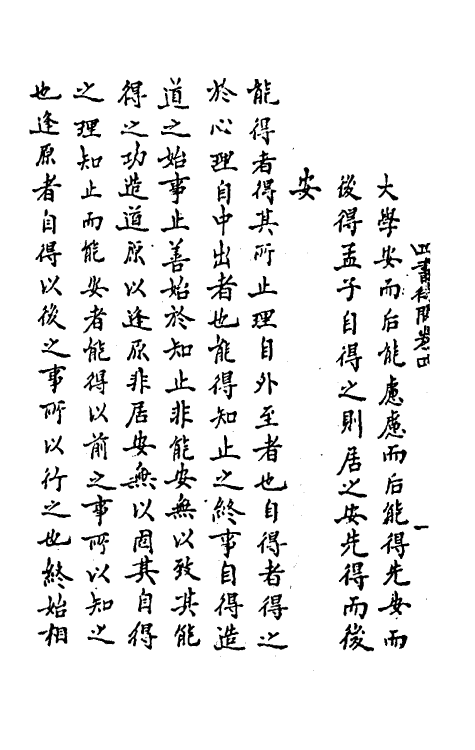 四書待問卷四 一
大學安而后能慮慮而后能得先安而
後得孟子自得之則居之安先得而後
安
能得者得其所止理自外至者也自得者得之
於心理自中出者也能得知止之終事自得造
道之始事止善始於知止非能安無以致其能
得之功造道原以逢原非居安無以固其自得
之理知止而能安者能得以前之事所以知之
也逢原者自得以後之事所以行之也終始相